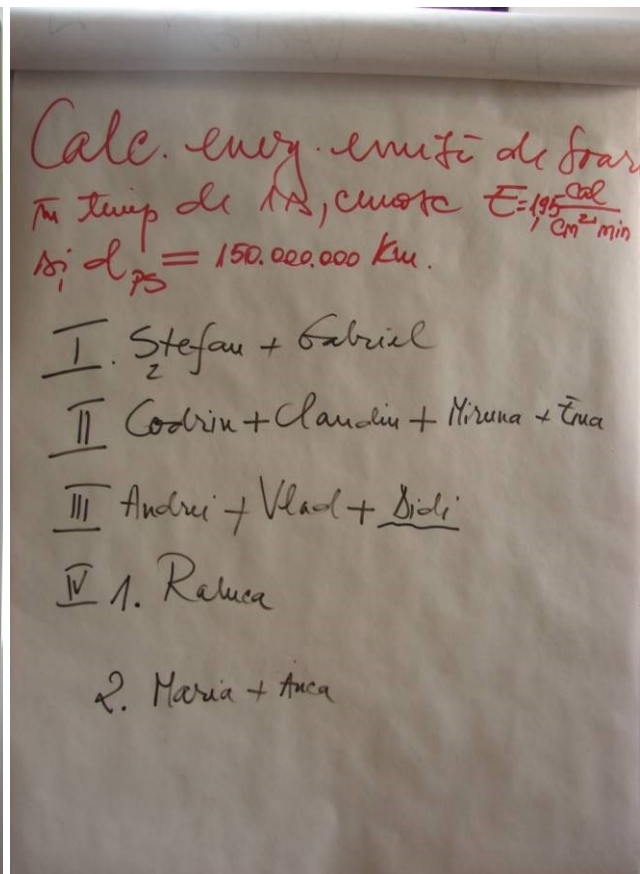 Calc. energ. emisă de Soare
în timp de 1s, cunosc E=1,95 cal/cm² min
și d PS = 150.000.000 Km.
I. Ștefan + Gabriel
II Codrin + Claudiu + Miruna + Ema
III Andrei + Vlad + Didi
IV 1. Raluca
2. Maria + Anca